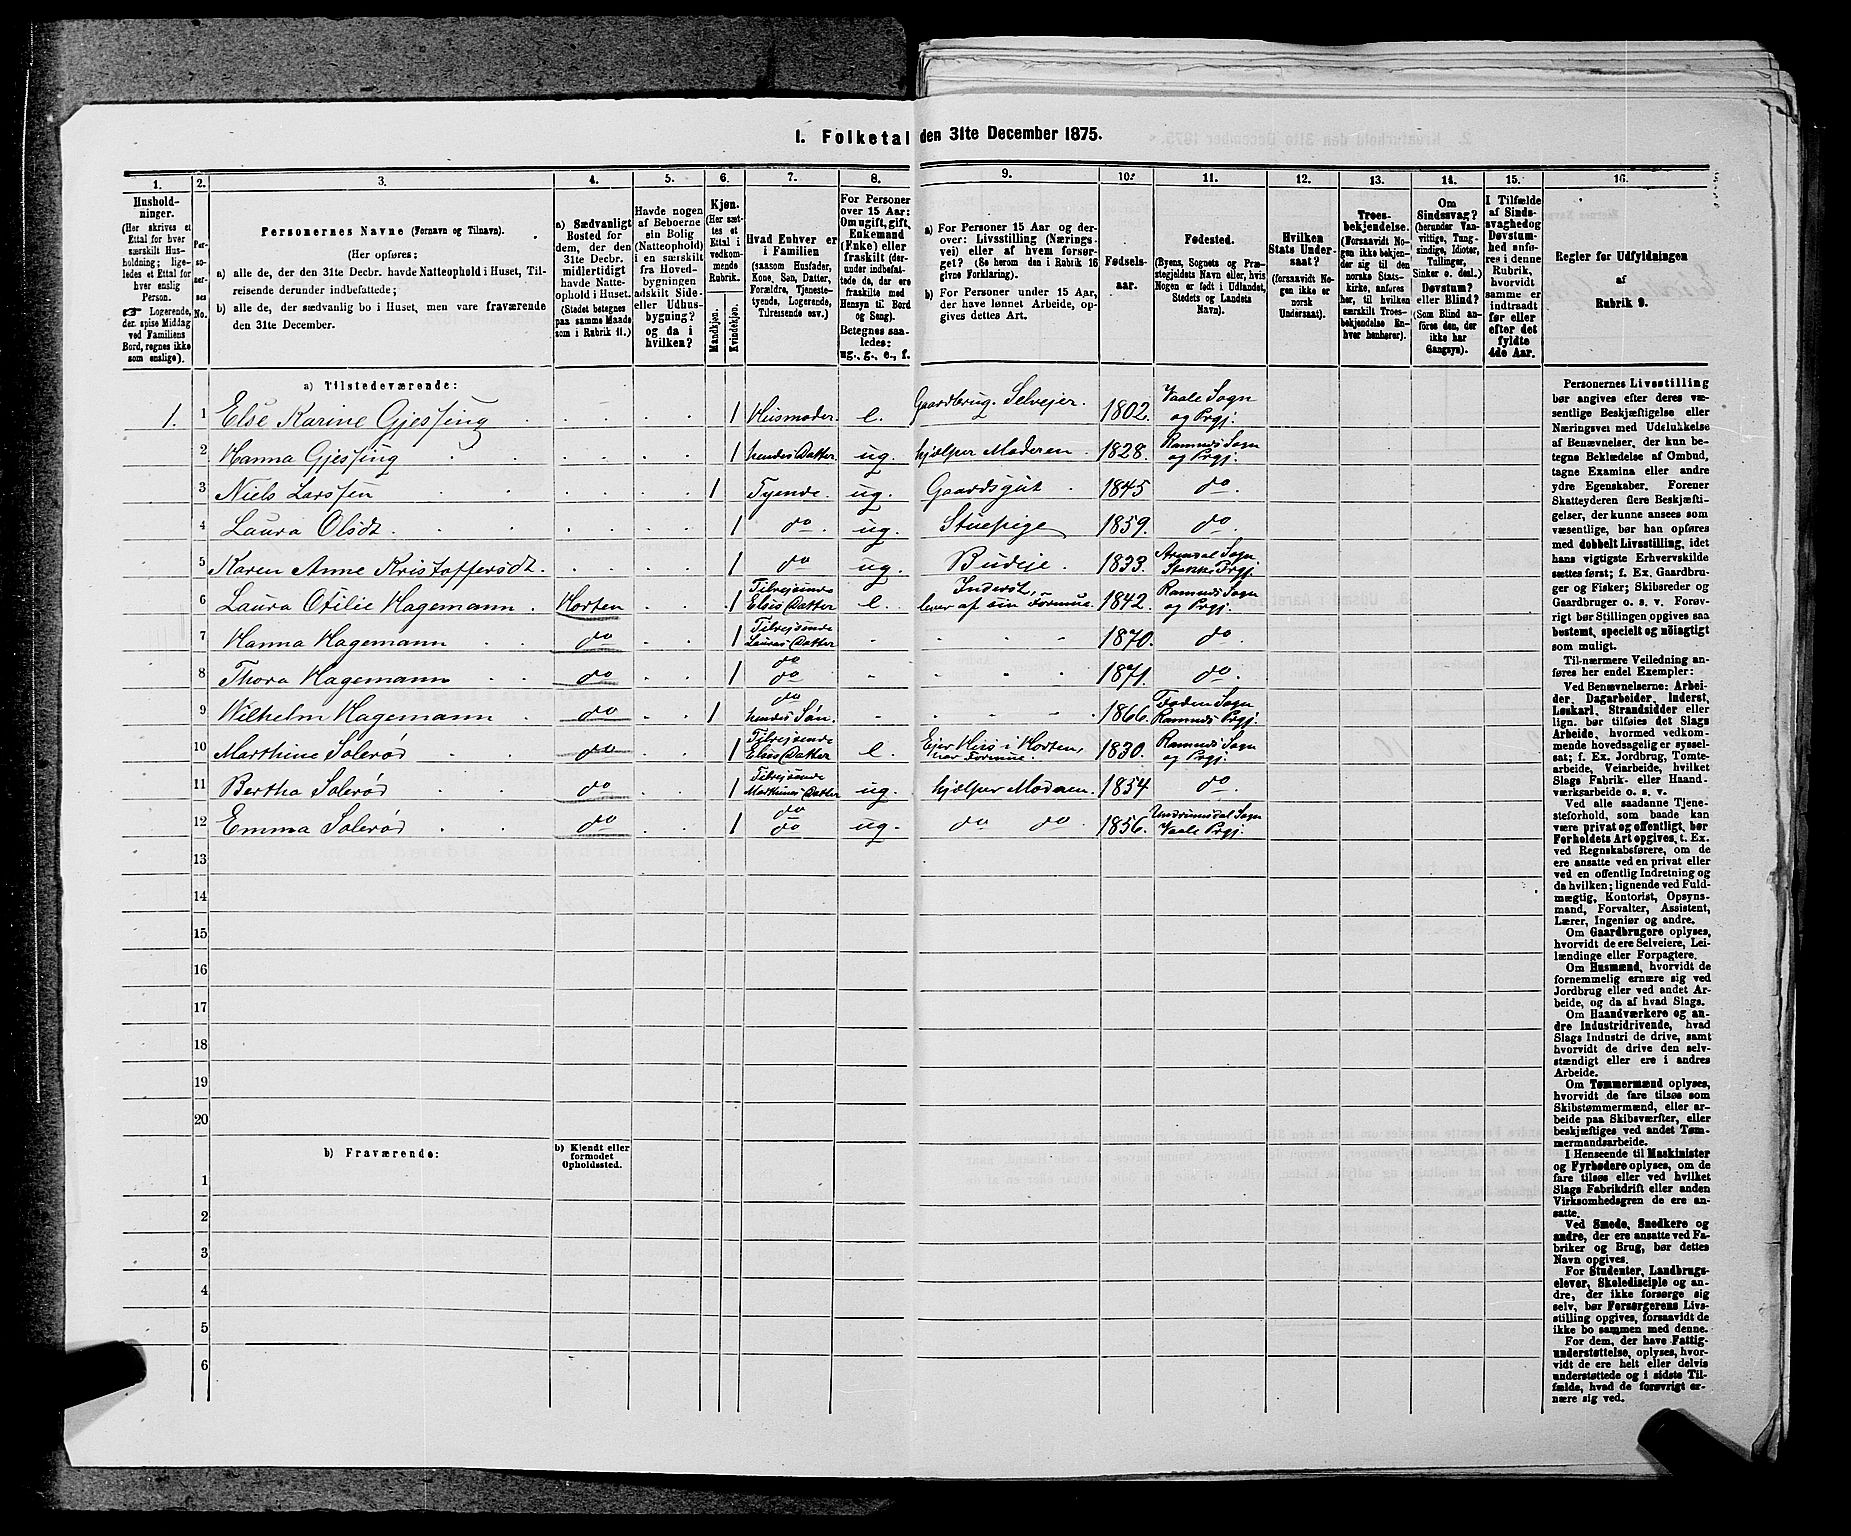 1. Folketal den 31te December 1875.
1. 2. 3. 4. 5. 6. 7. 8. 9. 10. 11. 12. 13. 14. 15. 16.
Hushold-
ninger.
(Her skrives et
Ettal for hver
særskilt Hus-
holdning; lige-
ledes et Ettal for
hver enslig
Person.
☞ Logerende,
der spise Middag
ved Familiens
Bord, regnes ikke
som enslige).
Per-
so-
ner-
nes
No.
Personernes Navne (Fornavn og Tilnavn).
(Her opføres:
a) alle de, der den 31te Decbr. havde Natteophold i Huset, Til-
reisende derunder indbefattede;
b) alle de, der sædvanlig bo i Huset, men vare fraværende
den 31te December.
a) Sædvanligt
Bosted for
dem, der den
31te Decbr.
midlertidigt
havde Natte-
ophold i Huset.
(Stedet betegnes
paa samme Maade
som i Rubrik 11.)
Havde nogen
af Beboerne
sin Bolig
(Natteophold)
i en særskilt
fra Hoved-
bygningen
adskilt Side-
eller Udhus-
bygning?
og da i
hvilken?
Kjøn.
(Her sæt-
tes et
Ettal i
vedkom-
mende
Rubrik.
Mandkjøn.
Kvindekjøn.
Hvad Enhver er
i Familien
(saasom Husfader,
Kone, Søn, Datter,
Forældre, Tjeneste-
tyende, Logerende,
Tilreisende osv.)
For Personer
over 15 Aar:
Om ugift, gift,
Enkemand
(Enke) eller
fraskilt (der-
under indbefat-
tede de, der ere
fraskilte med
Hensyn til Bord
og Seng).
Betegnes saa-
ledes:
ug., g., e., f.
a) For Personer 15 Aar og der-
over: Livsstilling (Nærings-
vei) eller af hvem forsør-
get? (Se herom den i Rubrik 16
givne Forklaring).
b) For Personer under 15 Aar,
der have lønnet Arbeide, op-
gives dettes Art.
Fødsels-
aar.
Fødested.
(Byens, Sognets og Præ-
stegjeldets Navn, eller, hvis
Nogen er født i Udlandet,
Stedets og Landets
Navn).
Hvilken
Stats Under-
saat?
(forsaavidt No-
gen ikke er
norsk
Undersaat).
Troes-
bekjendelse.
(Forsaavidt No-
gen ikke bekjen-
der sig til den
norske Stats-
kirke, anføres
her, til hvilken
særskilt Troes-
bekjendelse En-
hver henhører).
Om
Sindssvag?
(herunder Van-
vittige, Tung-
sindige, Idioter,
Tullinger,
Sinker o. desl.)
Døvstum?
eller Blind?
(Som Blind an-
føres den, der
ikke har
Gangsyn).
I Tilfælde
af Sinds-
svaghed og
Døvstum-
hed anfø-
res i denne
Rubrik,
hvorvidt
samme er
indtraadt
før eller
efter det
fyldte
4de Aar.
Regler for Udfyldningen
af
Rubrik 9.
a) Tilstedeværende:
1. 1 Else Karine Gjessing 1 Husmoder e. Gaardbrug. Selvejer. 1802. Vaale Sogn og Prgj.
2 Hanna Gjessing 1 hendes Datter. ug. hjælper Moderen. 1828. Ramnes Sogn og Prgj.
3 Niels Larssen 1 Tyende. ug. Gaardsgut 1845 do
4 Laura Olsdt. 1 do. ug. Stuepige 1859. do.
5 Karen Anne Kristoffersdt 1 do ug. Budeje. 1833. Sogn Prgj.
6 Laura Otilie Hagemann. Horten 1 Tilrejsende Elses Datter e. Inderst, lever af sin Formue. 1842. Ramnes Sogn og Prgj.
7 Hanna Hagemann do 1 Tilrejsende Lauras Datter - - - - 1870. do
8 Thora Hagemann do 1 do do - - - - 1871. do.
9 Wilhelm Hagemann do 1 do hendes Søn. - - - - 1866. Foden Sogn Ramnes Prgj.
10 Marthine Solerød do 1 Tilrejsende Elses Datter e Ejer Hus i Horten, har Formue. 1830. Ramnes Sogn og Prgj.
11 Bertha Solerød do 1 Tilrejsende Marthines Datter ug. hjælper Moderen. 1854 do
12 Emma Solerød do 1 do do ug. do do. 1856. Undrumsdal Sogn Vaale Prgj.
13
14
15
16
17
18
19
20
b) Fraværende:
b) Kjendt eller
formodet
Opholdssted.
1
2
3
4
5
6
Personernes Livsstilling
bør angives efter deres væ-
sentlige Beskjæftigelse eller
Næringsvei med Udelukkelse
af Benævnelser, der kun be-
tegne Beklædelse af Ombud,
tagne Examina eller andre
ydre Egenskaber. Forener
Skatteyderen flere Beskjæfti-
gelser, der kunne ansees som
væsentlige, bør han opføres
med dobbelt Livsstilling, idet
hans vigtigste Erhvervskilde
sættes først; f. Ex. Gaardbru-
ger og Fisker; Skibsreder og
Gaardbruger o. s. v. Forøv-
rigt bør Stillingen opgives saa
bestemt, specielt og nöiagtigt
som muligt.
Til nærmere Veiledning an-
føres her endel Exempler:
Ved Benævnelserne: Arbei-
der, Dagarbeider, Inderst,
Løskarl, Strandsidder eller
lign. bør tilføies det Slags
Arbeide, hvormed vedkom-
mende hovedsagelig er syssel-
sat; f. Ex. Jordbrug, Tomte-
arbeide, Veiarbeide, hvilket
Slags Fabrik- eller Haand-
værksarbeide o. s. v.
Ved alle saadanne Tjene-
steforhold, som baade kan
være privat og offentligt, bør
Forholdets Art opgives, t. Ex.
ved Regnskabsførere, om de
ere ansatte ved en privat eller
ved en offentlig Indretning og
da hvilken; lignende ved Fuld-
mægtig, Kontorist, Opsyns-
mand, Forvalter, Assistent,
Lærer, Ingeniør og andre.
Om Gaardbrugere oplyses,
hvorvidt de ere Selveiere, Lei-
lændinge eller Forpagtere.
Om Husmænd, hvorvidt de
fornemmelig ernære sig ved
Jordbrug eller ved andet Ar-
beide, og da af hvad Slags.
Om Haandværkere og an-
dre Industridrivende, hvad
Slags Industri de drive, samt
hvorvidt de drive den selv-
stændigt eller ere i andres
Arbeide.
Om Tømmermænd oplyses,
hvorvidt de fare tilsøs som
Skibstømmermænd, eller ar-
beide paa Skibsværfter, eller
beskjæftiges ved andet Tøm-
mermandsarbeide.
I Henseende til Maskinister
og Fyrbødere oplyses, om de
fare tilsøs eller ved hvilket
Slags Fabrikdrift eller anden
Virksomhedsgren de ere an-
satte.
Ved Smede, Snedkere og
andre, der ere ansatte ved Fa-
briker og Brug, bør dettes
Navn opgives.
For Studenter, Landbrugs-
elever, Skoledisciple og an-
dre, der ikke forsørge sig
selv, bør Forsørgerens Livs-
stilling opgives, forsaavidt de
ikke bo sammen med denne.
For dem, der have Fattig-
understøttelse, oplyses, hvor-
vidt de ere helt eller delvis
understøttede og i sidste Til-
fælde, hvad de forøvrigt er-
nære sig ved.